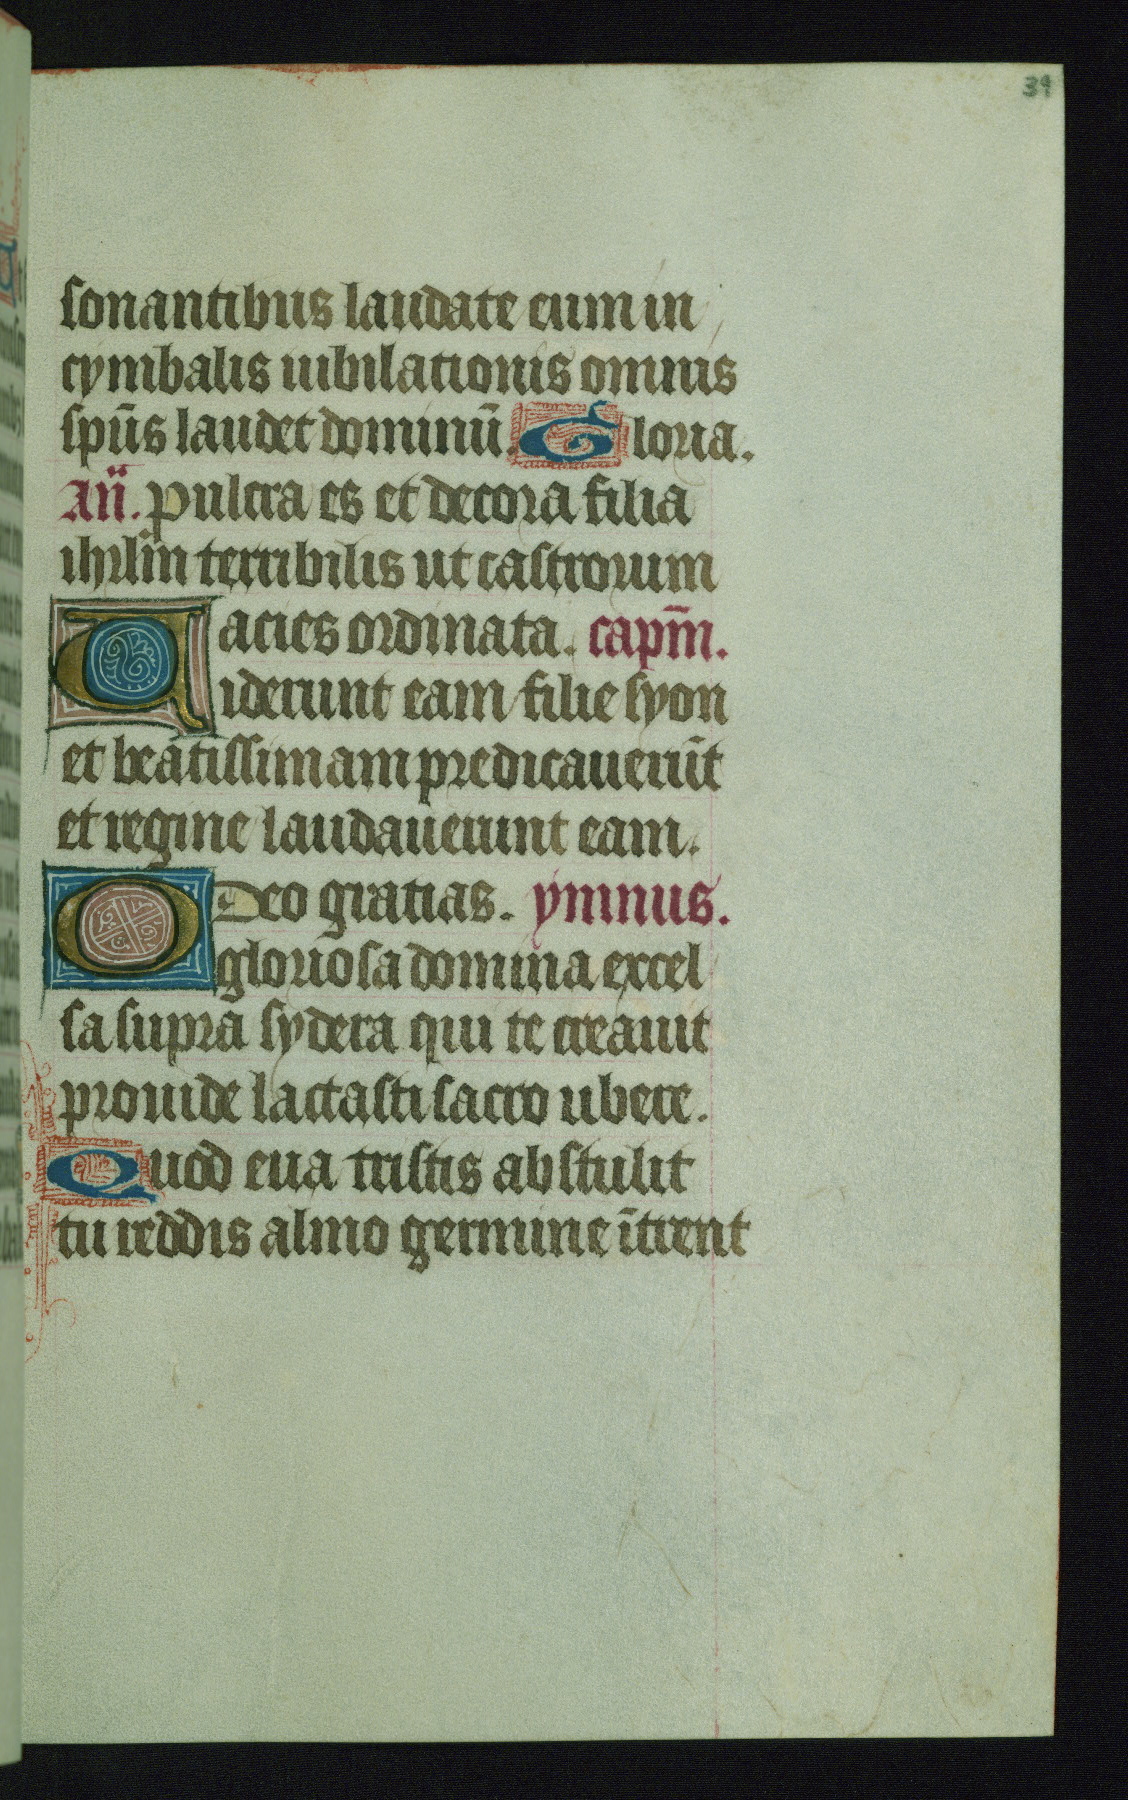 39
sonantibus laudate eum in
cymbalis iubilationis omnis
spūs laudet dominū. Gloria.
An̄. pulcra es et decora filia
ihrl̄m terribilis ut castrorum
acies ordinata. capm̄.
Viderunt eam filie syon
et beatissimam predicauerūt
et regine laudauerunt eam.
Deo gratias. ymnus.
O gloriosa domina excel
sa supra sydera qui te creauit
prouide lactasti sacro ubere.
Quod eua tristis abstulit
tu reddis almo germine ītrent